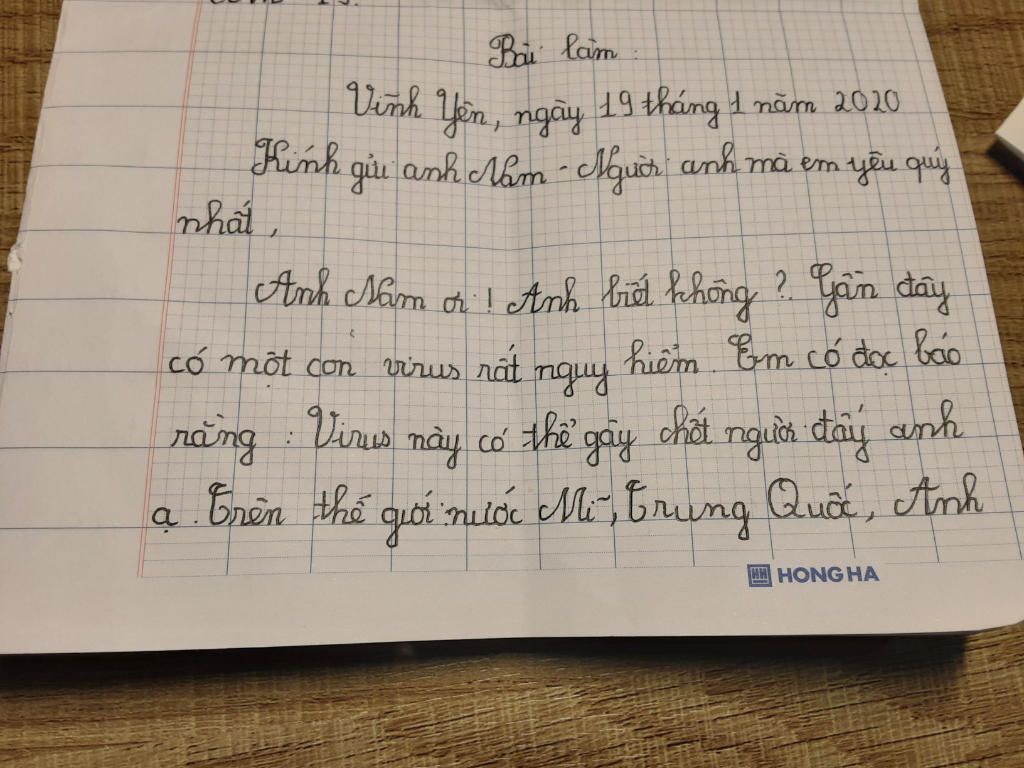 Bài làm:
Vĩnh Yên, ngày 19 tháng 1 năm 2020
Kính gửi anh Nam - Người anh mà em yêu quý
nhất,
Anh Nam ơi! Anh biết không? Gần đây
có một con virus rất nguy hiểm. Em có đọc báo
rằng: Virus này có thể gây chết người đấy anh
ạ. Trên thế giới: nước Mĩ, Trung Quốc, Anh
HONG HA